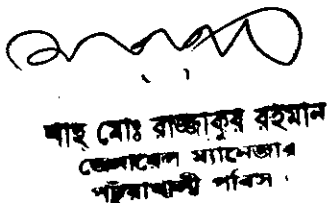 শাহ মোঃ রাজ্জাকুর রহমান
জেনারেল ম্যানেজার
পটুয়াখালী পবিস।